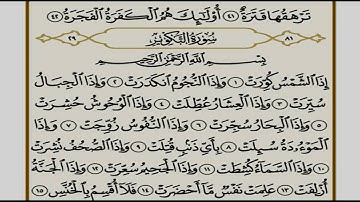 تَرْهَقُهَا قَتَرَةٌ ٤١ أُوْلَٰٓئِكَ هُمُ ٱلْكَفَرَةُ ٱلْفَجَرَةُ ٤٢
٨١ سُورَةُ التَّكْوِيرِ ٢٩
بِسْمِ ٱللَّهِ ٱلرَّحْمَٰنِ ٱلرَّحِيمِ
إِذَا ٱلشَّمْسُ كُوِّرَتْ ١ وَإِذَا ٱلنُّجُومُ ٱنكَدَرَتْ ٢ وَإِذَا ٱلْجِبَالُ
سُيِّرَتْ ٣ وَإِذَا ٱلْعِشَارُ عُطِّلَتْ ٤ وَإِذَا ٱلْوُحُوشُ حُشِرَتْ
٥ وَإِذَا ٱلْبِحَارُ سُجِّرَتْ ٦ وَإِذَا ٱلنُّفُوسُ زُوِّجَتْ ٧ وَإِذَا
ٱلْمَوْءُۥدَةُ سُئِلَتْ ٨ بِأَيِّ ذَنۢبٍ قُتِلَتْ ٩ وَإِذَا ٱلصُّحُفُ نُشِرَتْ
١٠ وَإِذَا ٱلسَّمَآءُ كُشِطَتْ ١١ وَإِذَا ٱلْجَحِيمُ سُعِّرَتْ ١٢ وَإِذَا ٱلْجَنَّةُ
أُزْلِفَتْ ١٣ عَلِمَتْ نَفْسٌ مَّآ أَحْضَرَتْ ١٤ فَلَآ أُقْسِمُ بِٱلْخُنَّسِ ١٥